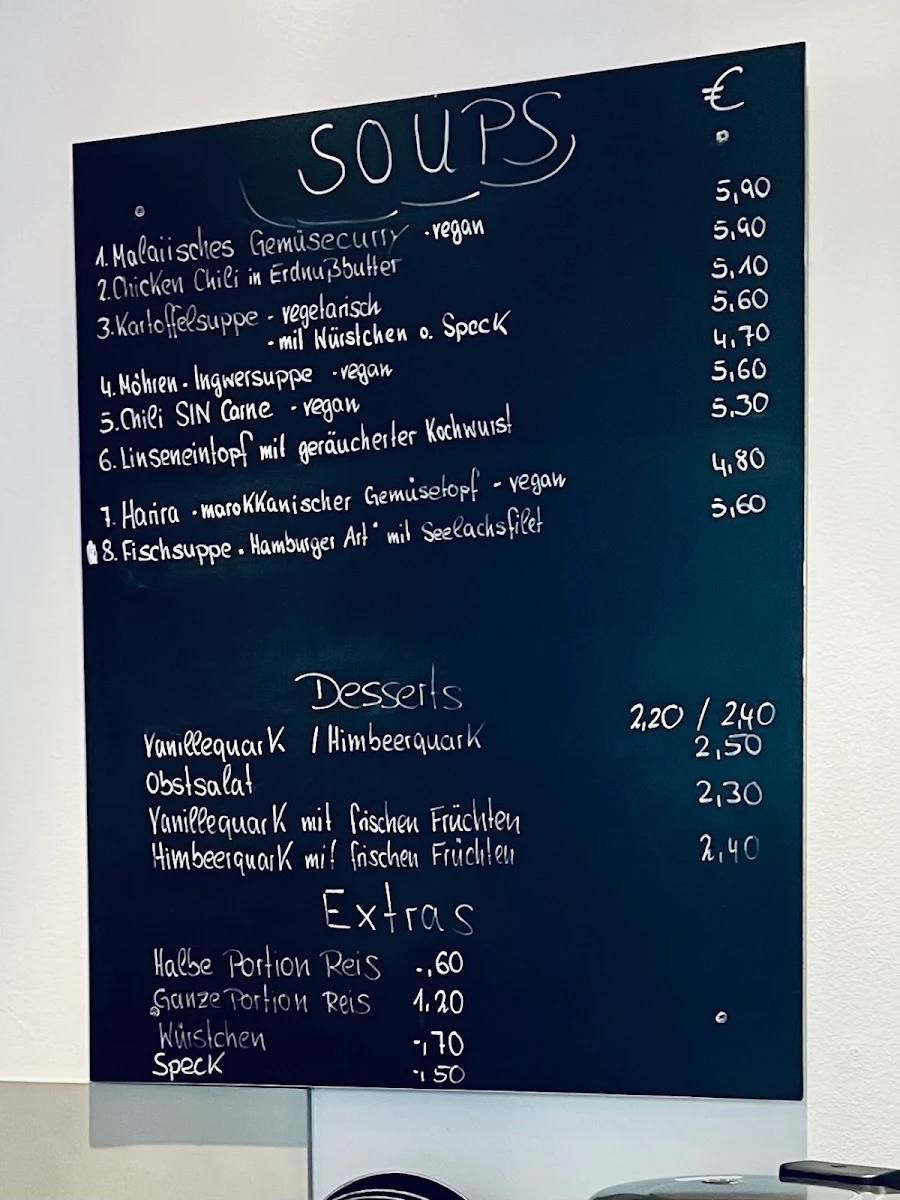 SOUPS €
1. Malaiisches Gemüsecurry - vegan 5,90
2. Chicken Chili in Erdnußbutter 5,90
3. Kartoffelsuppe - vegetarisch 5,10
- mit Würstchen o. Speck 5,60
4. Möhren - Ingwersuppe - vegan 4,70
5. Chili SIN Carne - vegan 5,60
6. Linseneintopf mit geräucherter Kochwurst 5,30
7. Harira - marokkanischer Gemüsetopf - vegan 4,80
8. Fischsuppe „Hamburger Art“ mit Seelachsfilet 5,60
Desserts
Vanillequark / Himbeerquark 2,20 / 2,40
Obstsalat 2,50
Vanillequark mit frischen Früchten 2,30
Himbeerquark mit frischen Früchten 2,40
Extras
Halbe Portion Reis -,60
Ganze Portion Reis 1,20
Würstchen -,70
Speck -,50